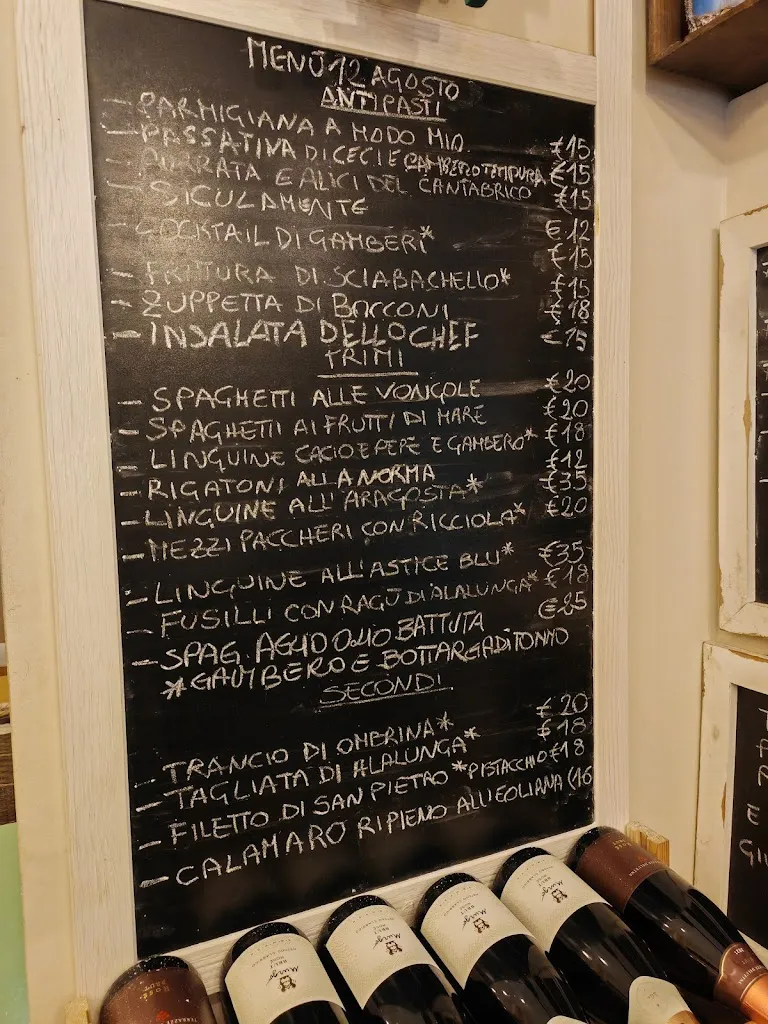 MENÙ 12 AGOSTO
ANTIPASTI
- PARMIGIANA A MODO MIO €15
- PASSATINA DI CECI E GAMBERO TEMPURA €15
- BURRATA E ALICI DEL CANTABRICO €15
- SICULAMENTE €12
- COCKTAIL DI GAMBERI* €15
- FRITTURA DI SCIABACHELLO* €15
- ZUPPETTA DI BOCCONI €18
- INSALATA DELLO CHEF €15
PRIMI
- SPAGHETTI ALLE VONGOLE €20
- SPAGHETTI AI FRUTTI DI MARE €20
- LINGUINE CACIO E PEPE E GAMBERO* €18
- RIGATONI ALLA NORMA €12
- LINGUINE ALL'ARAGOSTA* €35
- MEZZI PACCHERI CON RICCIOLA* €20
- LINGUINE ALL'ASTICE BLU* €35
- FUSILLI CON RAGÙ DI ALALUNGA* €18
- SPAG. AGLIO OLIO BATTUTA €25
*GAMBERO E BOTTARGA DI TONNO
SECONDI
- TRANCIO DI OMBRINA* €20
- TAGLIATA DI ALALUNGA* €18
- FILETTO DI SAN PIETRO *PISTACCHIO €18
- CALAMARO RIPIENO ALL'EOLIANA €16
Murgo
BRUT
Murgo
BRUT
Murgo
BRUT
Murgo
BRUT
ROSÉ
BRUT